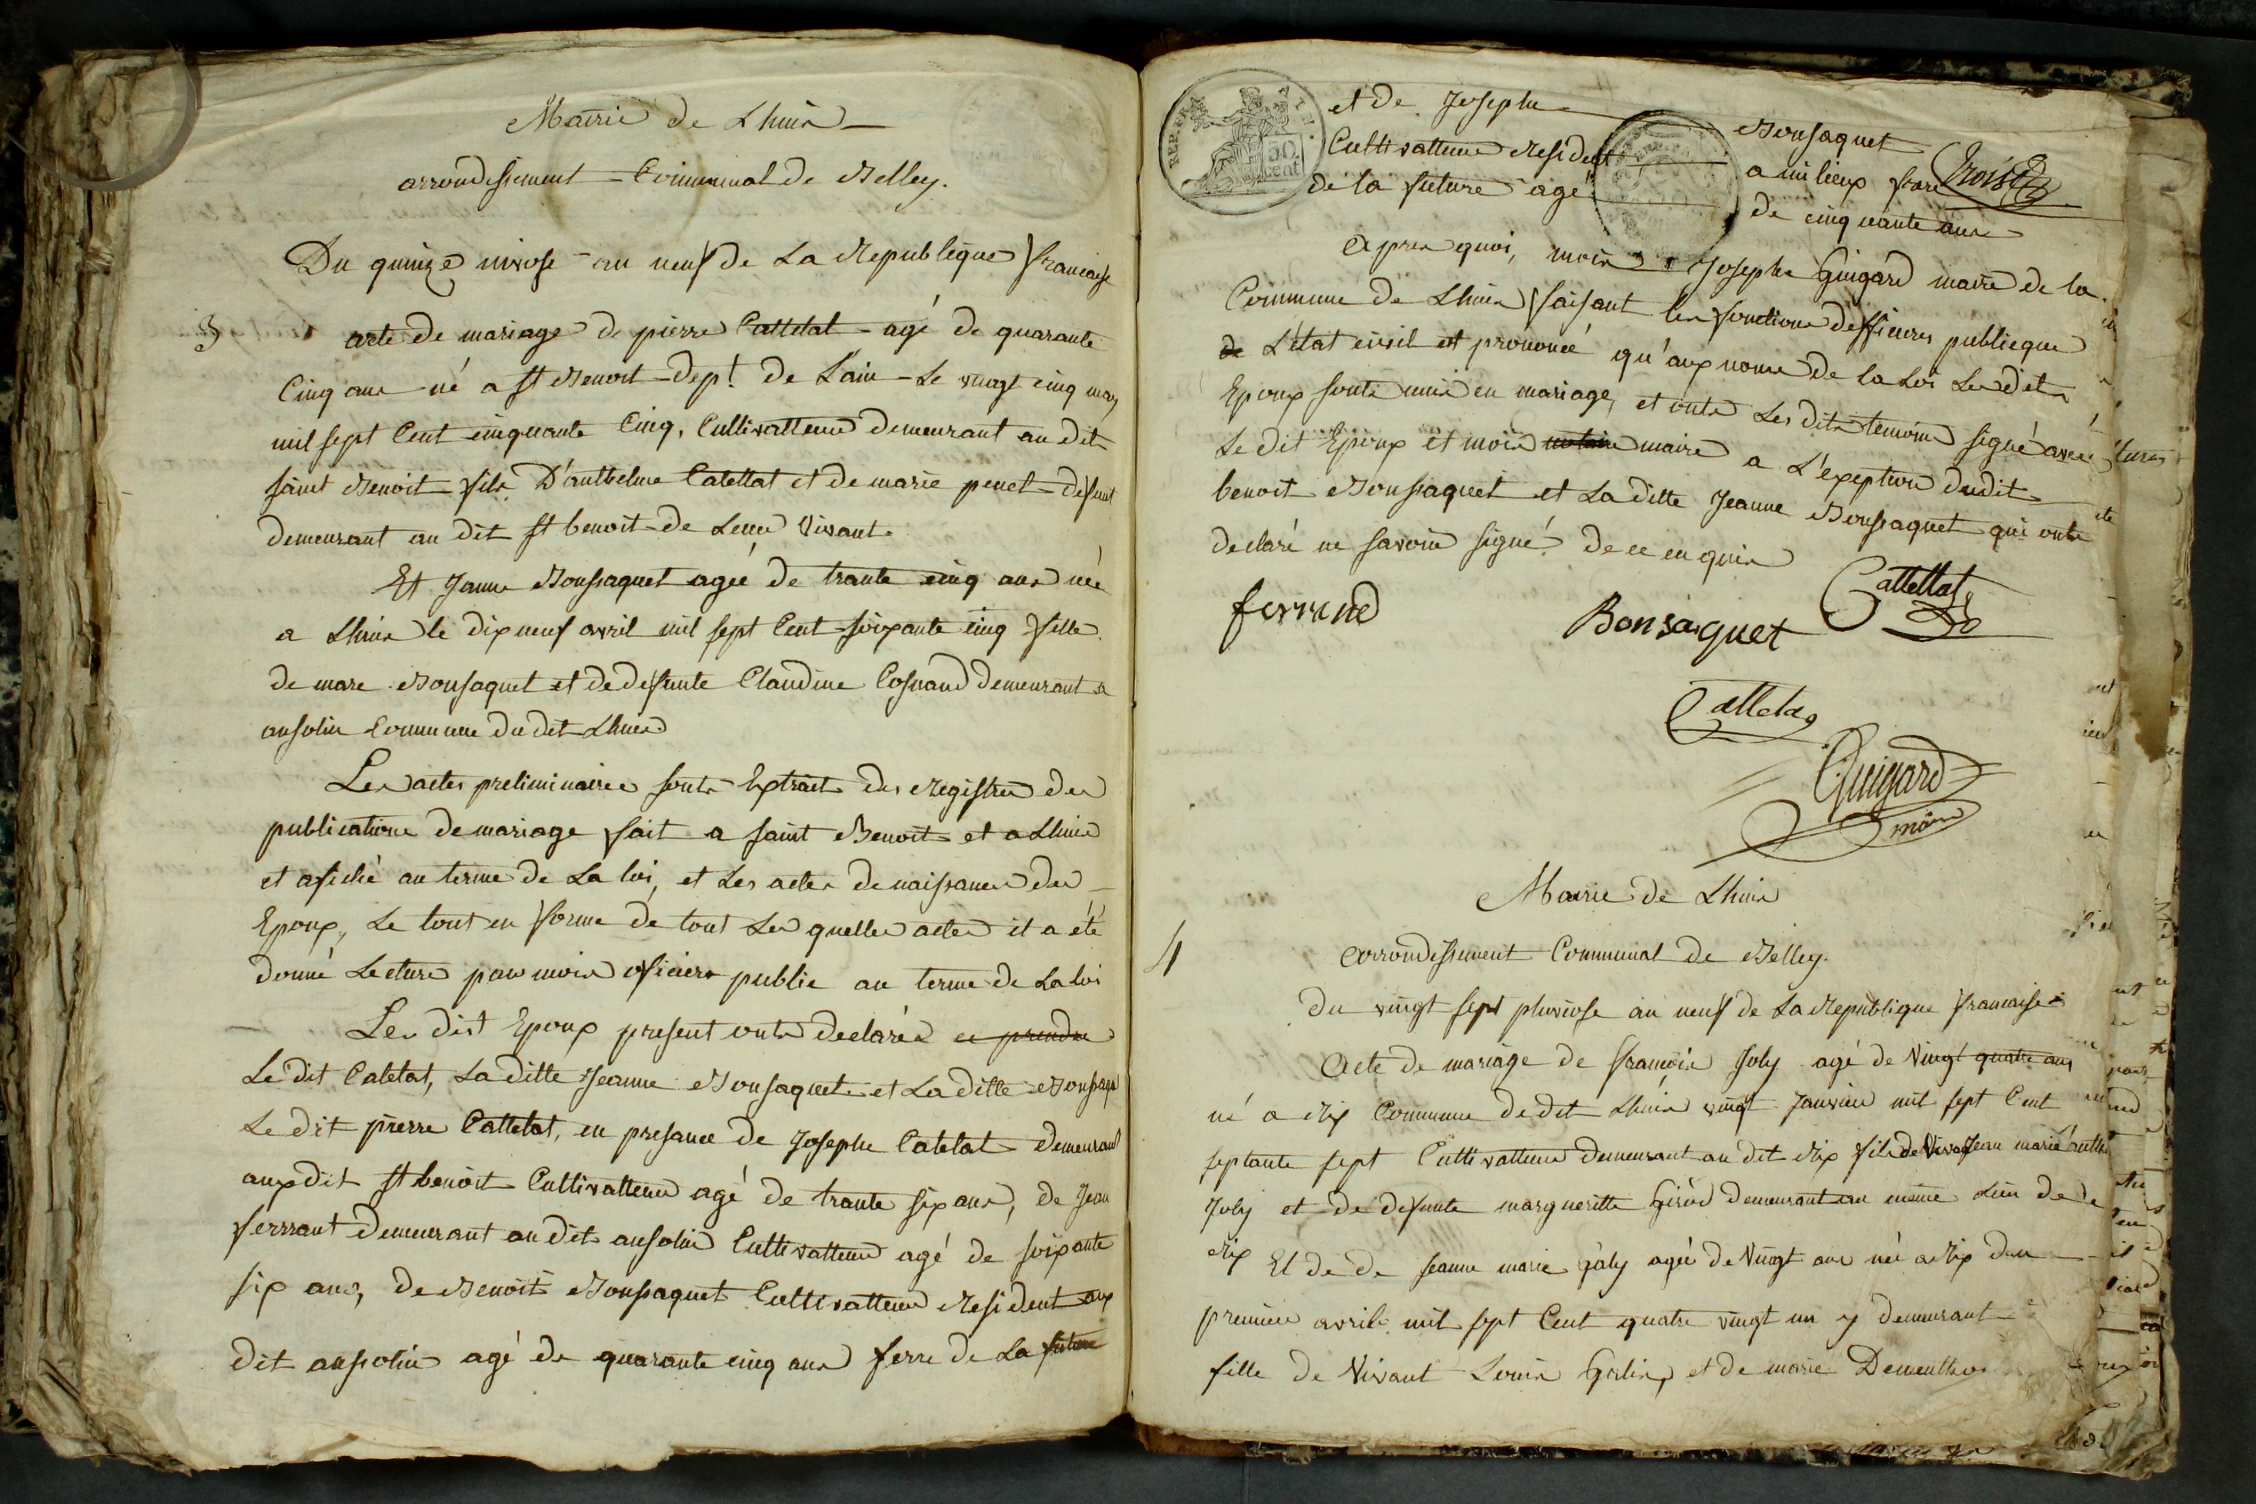 Mairie de Lhuis
arrondissement Communal de Belley.
Du quinze nivose an neuf de La Republique francaise
3 acte de mariage de pierre Cattelat agé de quarante
Cinq ans né a St Benoit dept. de Lain Le vingt cinq may
mil sept Cent cinquante Cinq, Cultivatteur demeurant au dit
saint Benoit fils D'anthelme Catellat et de marie penet defunt
demeurant au dit St benoit de Leur Vivant.
Et Jeanne Bonsaquet agée de trante cinq ans née
a Lhuis le dix neuf avril mil sept Cent soixante cinq fille
de marc Bonsaquet et de defunte Claudine Cosnand demeurant a
ansolin Commune du dit Lhuis
Les actes preliminaires sonts Extraits des Registres des
publications de mariage fait a saint Benoit et a Lhuis
et afiché au terme de La loi, et Les actes de naissances des
Epoux, Le tout en forme de tout Les quelles actes it a été
donné Lecture par mois oficiers public au terme de La loi
Les dist Epoux present onts declarés ce prendre
Le dit Catelat, La ditte Jeanne Bonsaquet et La ditte Bonsaqu
Le dit pierre Cattelat, en presance de Josephe Catelat demeurant
aux dit St benoit Cultivatteur agé de trante six ans, de Jean
ferrrant demeurant au dit ansolin Cultivatteur agé de soixante
six ans, de Benoit Bonsaquet Cultivatteur Resident aux
dit ansolin agé de quarante cinq ans frere de La future
et de Josephe Bonsaquet
Cultivatteur Resident a mi lieux frere
de la future agé de cinquante ans
trois
REP. FRA.
50 cent
Apres quoi, mois Josephe Guigard maire de la
Commune de Lhuis faisant les fonctions d'officiers publicque
de L'état civil et prononcé qu'aux noms de la Loi Les dits
Epoux sonts unis en mariage, et onts Les dits temoins signé avec
Le dit Epoux et mois notaire maire a L'exeption dudit
benoit Bonsaquet et La ditte Jeanne Bonsaquet qui onts
declaré ne savoir signé de ce enquis
ferrand
Bonsaquet
Cattellat
Cattelas
Guigard
maire
Mairie de Lhuis
4 arrondissement Communal de Belley.
Du vingt sept pluviose an neuf de La Republique francaise
Acte de mariage de francois Joly agé de Vingt quatre ans
né a Rix Commune dedit Lhuis vingt Janvier mil sept Cent
septante sept Cultivatteur demeurant au dit Rix fils de Vivant Jean marie anth
Joly et de defunte margueritte Girod demeurant au même Lieu de
Rix Et de de Jeanne marie galy agée de Vingt ans née a Rix du
premier avril mil sept Cent quatre vingt un y demeurant
fille de Vivant Louis galin, et de marie Dementhon